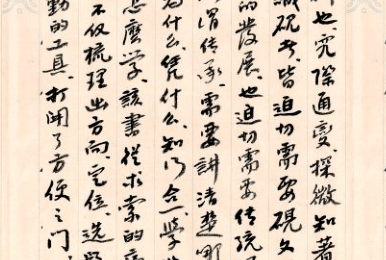 也。究际通变、探微知著
砚考，皆迫切需要砚文
的发展，也迫切需要传统
谓传承，需要讲清楚哪
为什么、凭什么、知行合一、学
怎麽学，该书从求索的
不仅梳理出方向、定位、选
勤的工具、打开了方便之门、